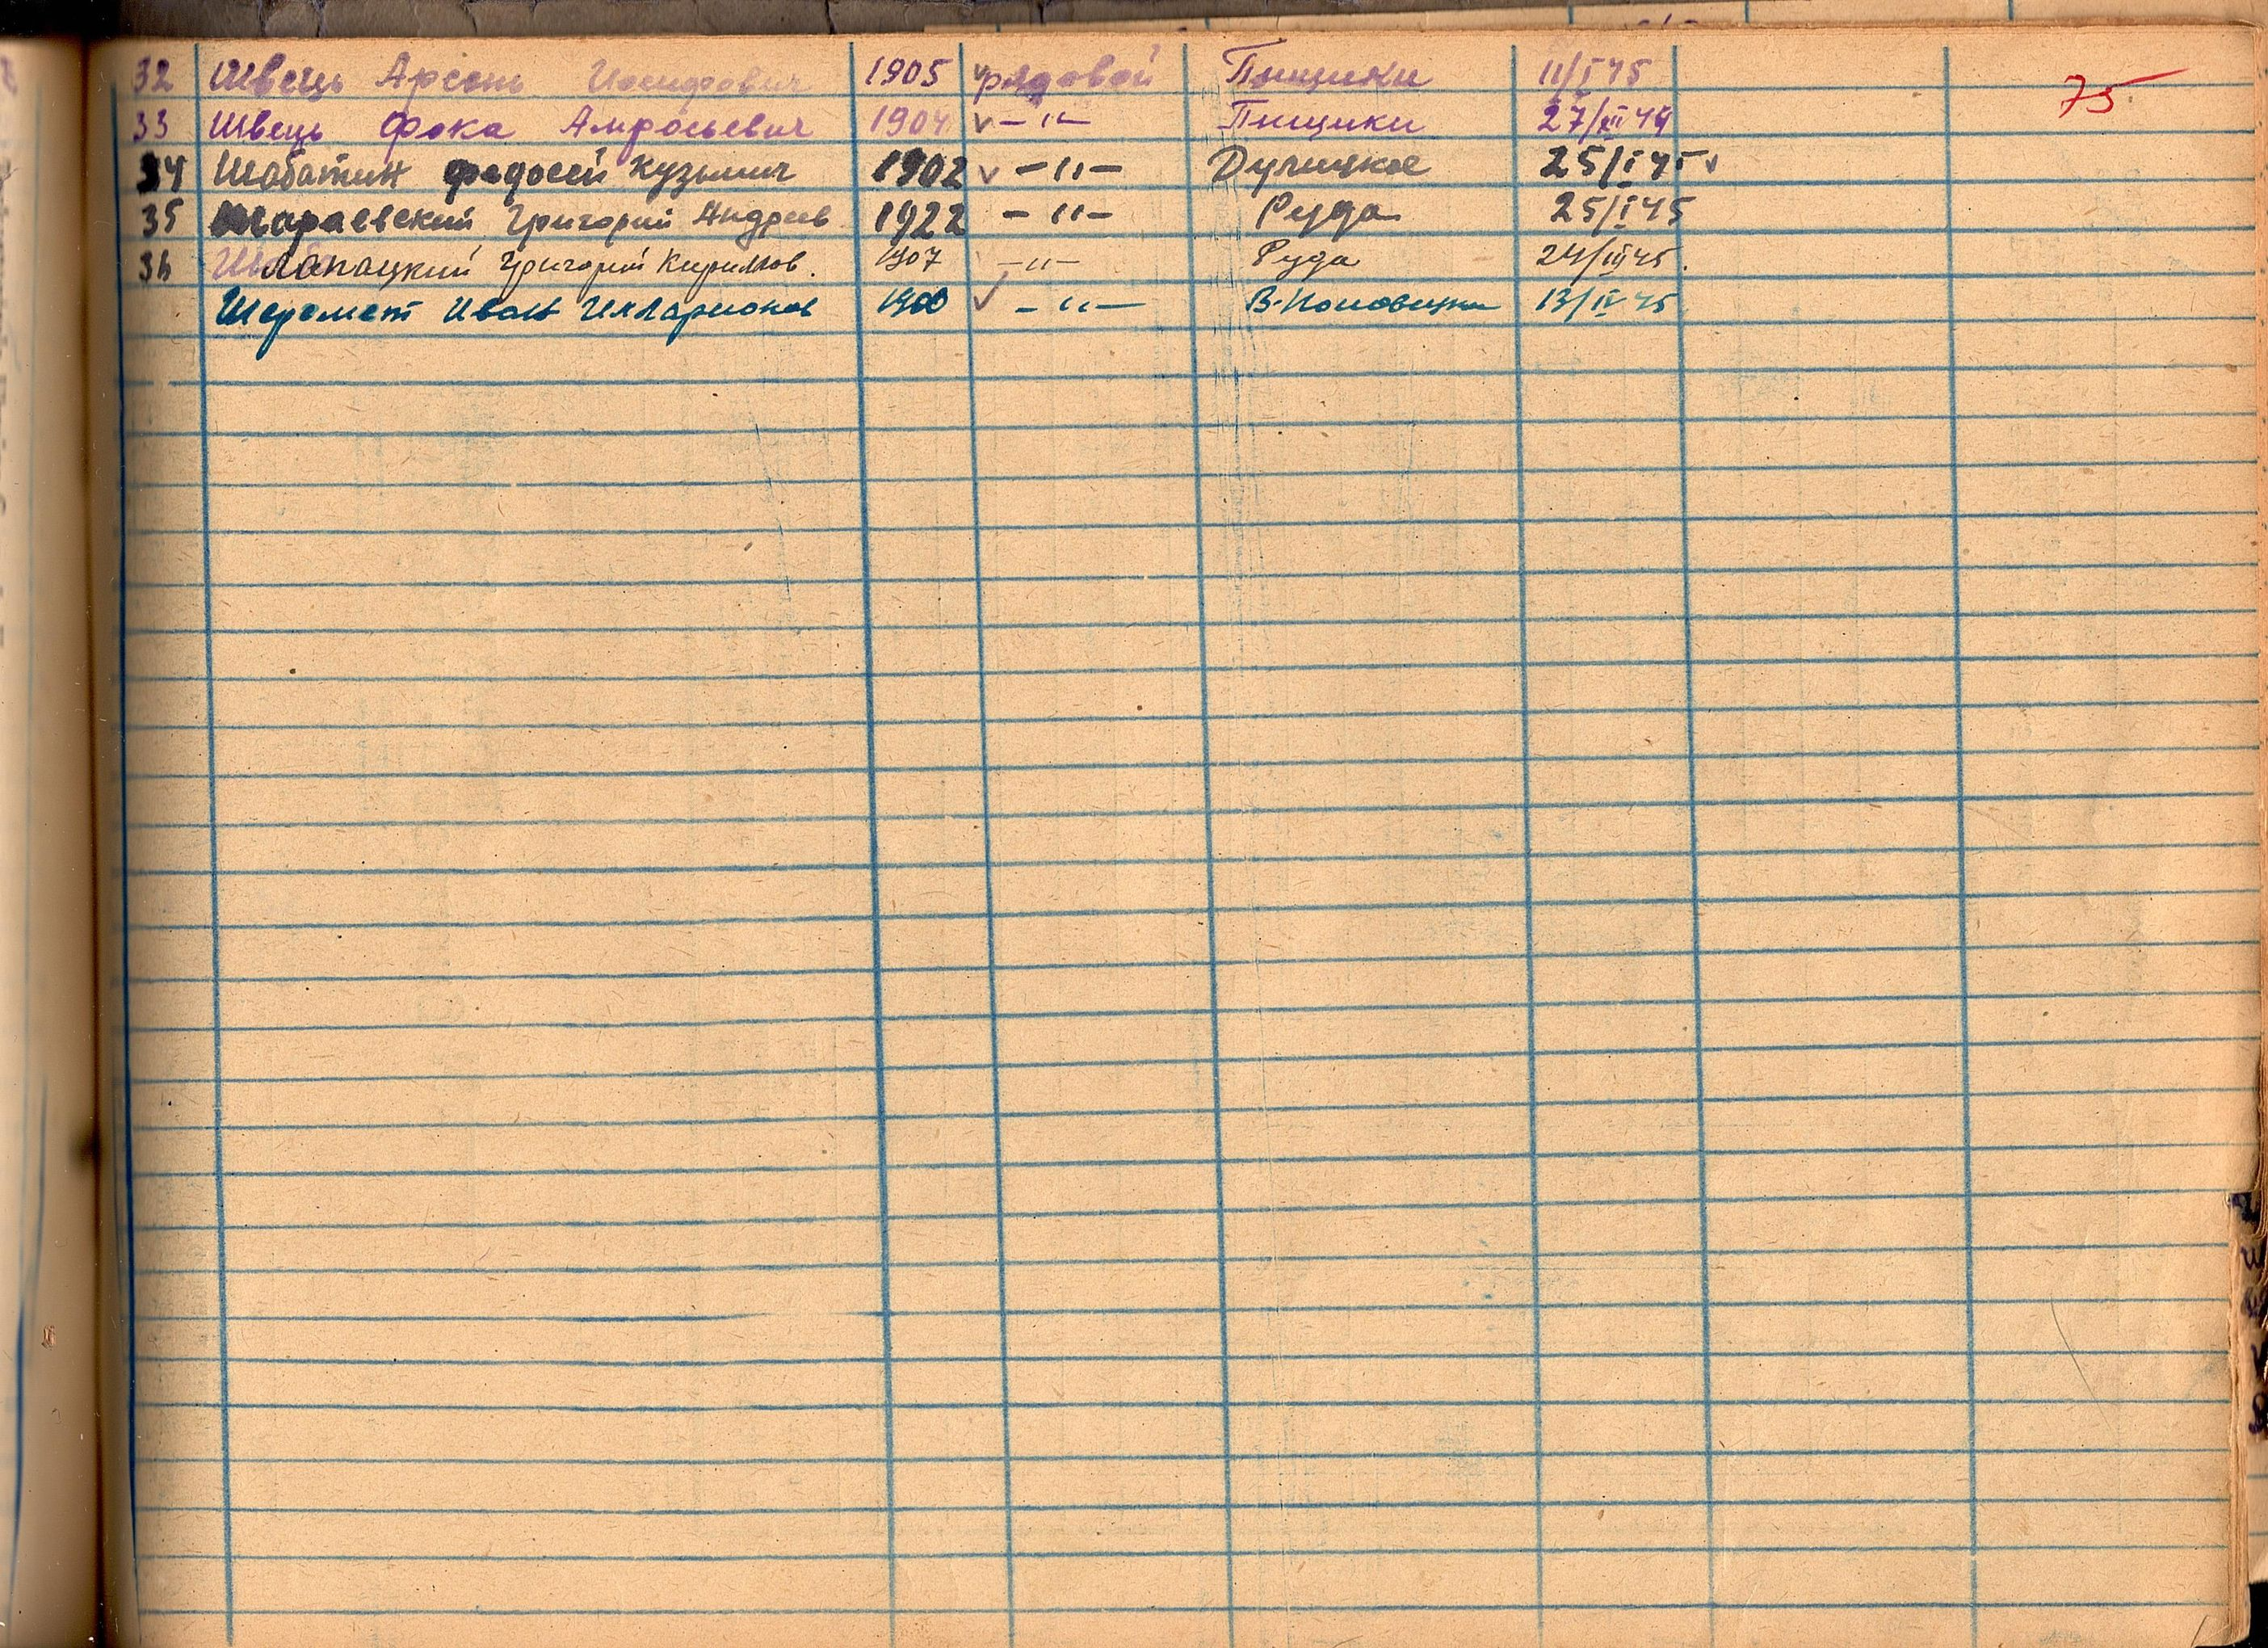 32 Швець Арсень Иосифович 1905 ✓ рядовой Пищики 11/I 45 75
33 Швець Фока Амросьевич 1904 ✓ –"– Пищики 27/XII 44
34 Шабатин Федосей Кузьмич 1902 ✓ –"– Дулицкое 25/I 45 ✓
35 Шараевский Григорий Андреев 1922 –"– Руда 25/I 45
36 Григорий Кириллов. 1907 –"– Руда 24/III 45.
Шеремет Иван Илларионов 1900 ✓ –"– 13/IV 45